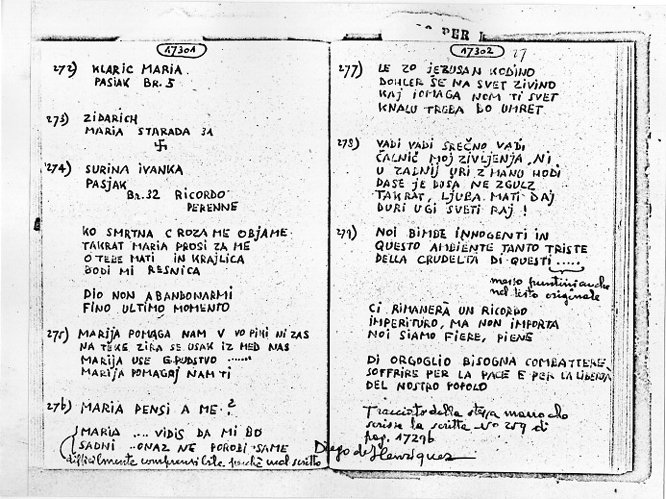 17301
272) KLARIC MARIA
PASJAK BR. 5
273) ZIDARICH
MARIA STARADA 31
274) SURINA IVANKA
PASJAK
BR. 32 RICORDO
PERENNE
KO SMRTNA GROZA ME OBJAME
TAKRAT MARIA PROSI ZA ME
O TEBE MATI IN KRAJLICA
BODI MI RESNICA
DIO NON ABANDONARMI
FINO ULTIMO MOMENTO
275) MARIJA POMAGA NAM V VO PIKI NIZAS
NA TEKE ZIRA SE USAK IZ MED NAS
MARIJA USE GRUDSTVO ......
MARIJA POMAGAJ NAM TI
276) MARIA PENSI A ME ?
MARIA .... VIDIS DA MI BO
SADNI ..ONAZ NE POROBI SAME
difficilmente comprensibile perchè mal scritto
PER
17302
27
277) LE ZO JEZUSAN HODINO
DOHLER SE NA SVET ZIVINO
KAJ POMAGA NOM TI SVET
KNALU TREBA BO UMRET
278) VADI VADI SREČNO VADI
ČALNIČ MOJ ZIVLJENJA, NI
U ZADNIJ URI Z MANO HODI
DASE JE DUSA NE ZGULZ
TAKRAT, LJUBA MATI DAJ
DURI UGI SVETI RAJ !
279) NOI BIMBE INNOGENTI IN
QUESTO AMBIENTE TANTO TRISTE
DELLA CRUDELTÀ DI QUESTI .....
messo puntini anche
nel testo originale
CI RIMANERÀ UN RICORDO
IMPERITURO, MA NON IMPORTA
NOI SIAMO FIERE, PIENE
DI ORGOGLIO BISOGNA COMBATTERE
SOFFRIRE PER LA PACE E PER LA LIBERTÀ
DEL NOSTRO POPOLO
Tracciato dalla stessa mano che
scrisse la scritta No 259 di
pag. 17296
Diego de Henriquez